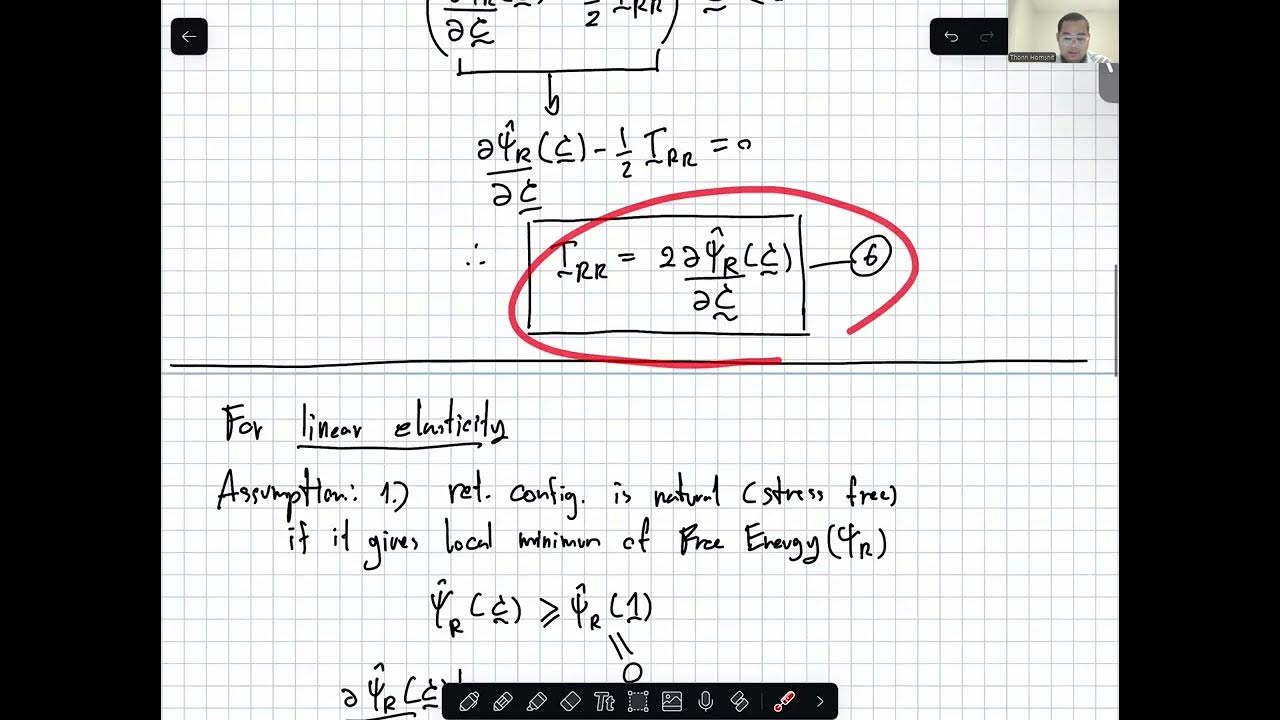 ∂Ĉ 2 T_RR
∂ψ̂_R(C) - 1/2 T_RR = 0
∂C
∴ T_RR = 2∂ψ̂_R(C) — ⑥
∂C
For linear elasticity
Assumption: 1.) ref. config. is natural (stress free)
if it gives local minimum of Free Energy (ψ_R)
ψ̂_R(C) ≥ ψ̂_R(1)
0
∂ψ̂_R(C)
Tt
Thonn Homsnit